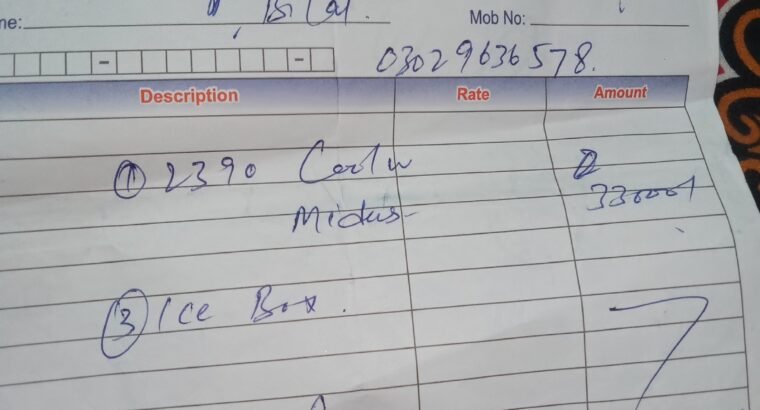 ne: Bilal. Mob No:
03029636578.
Description Rate Amount
① 2390 Cooler
Midas
33000/
③ Ice Box.